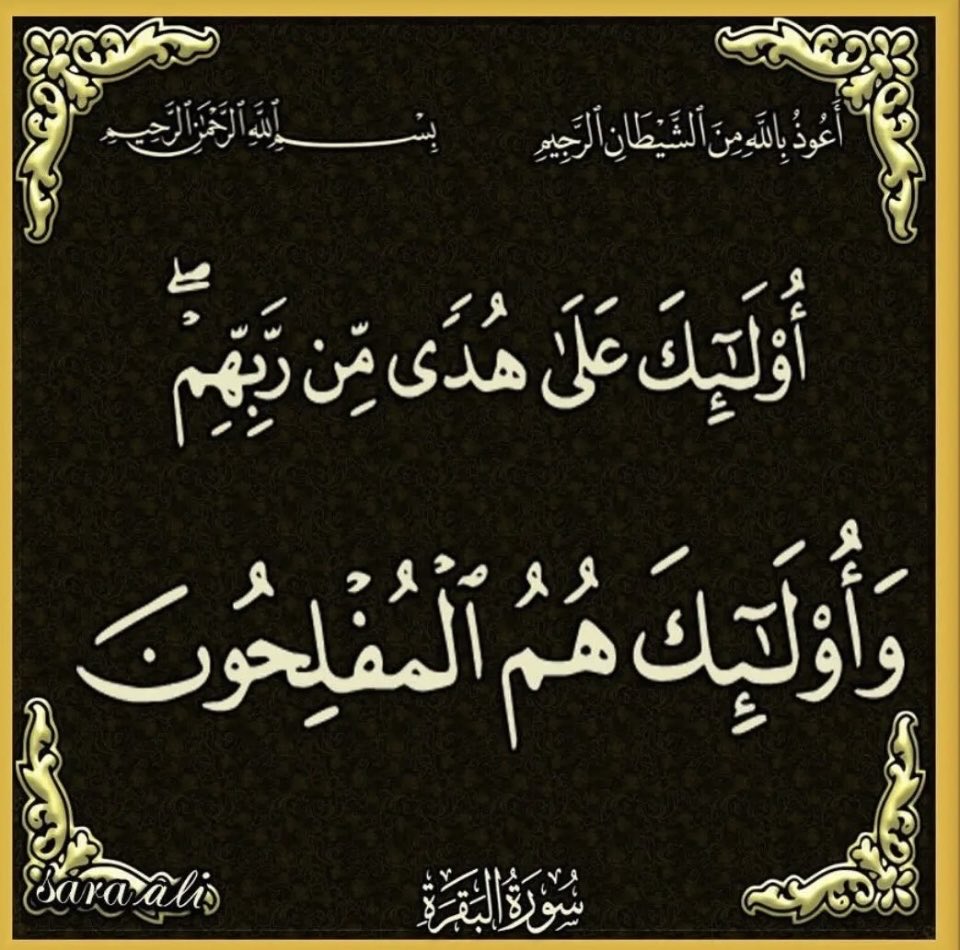 أَعُوذُ بِاللَّهِ مِنَ ٱلشَّيْطَانِ ٱلرَّجِيمِ
بِسْمِ ٱللَّهِ ٱلرَّحْمَٰنِ ٱلرَّحِيمِ
أُوْلَـٰٓئِكَ عَلَىٰ هُدًى مِّن رَّبِّهِمْۖ
وَأُوْلَـٰٓئِكَ هُمُ ٱلْمُفْلِحُونَ
سُورَةُ البَقَرَةِ
sara âli